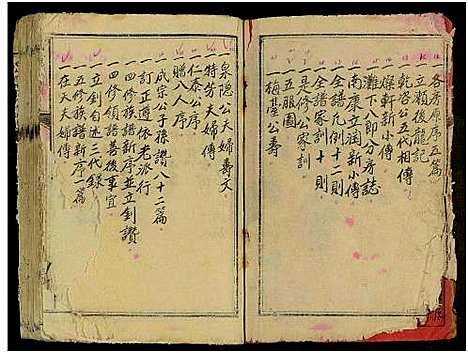 各房原序五篇
一立瀨後龍記
一乾巷公五代相傳
一燦軒新小傳
一灘下八郎分房誌
一南康立潤新小傳
一全譜凡例十二則
一全譜家訓十則
一是修公家訓
一五服圖
一梅臺公壽
一泉隐公夫婦壽文
一特芳夫婦傳
一仁泰公序
一贈八人序
一成宗公子孫讚八十二篇
一訂正遵依老派行
一四修族譜新序並立釗讚
一四修領譜善後事宜
一立釗自述三代錄
一五修族譜新序一篇
一在天夫婦傳